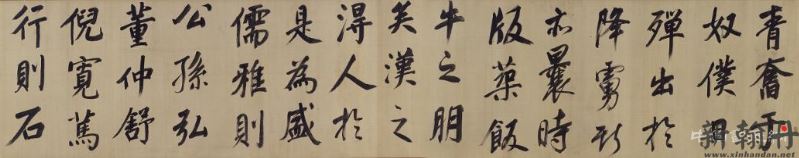 青奮于
奴僕日
磾出於
降虜斯
亦曩時
版築飯
牛之朋
矣漢之
得人於
是為盛
儒雅則
公孫弘
董仲舒
倪寬篤
行則石
www.xinhandan.net